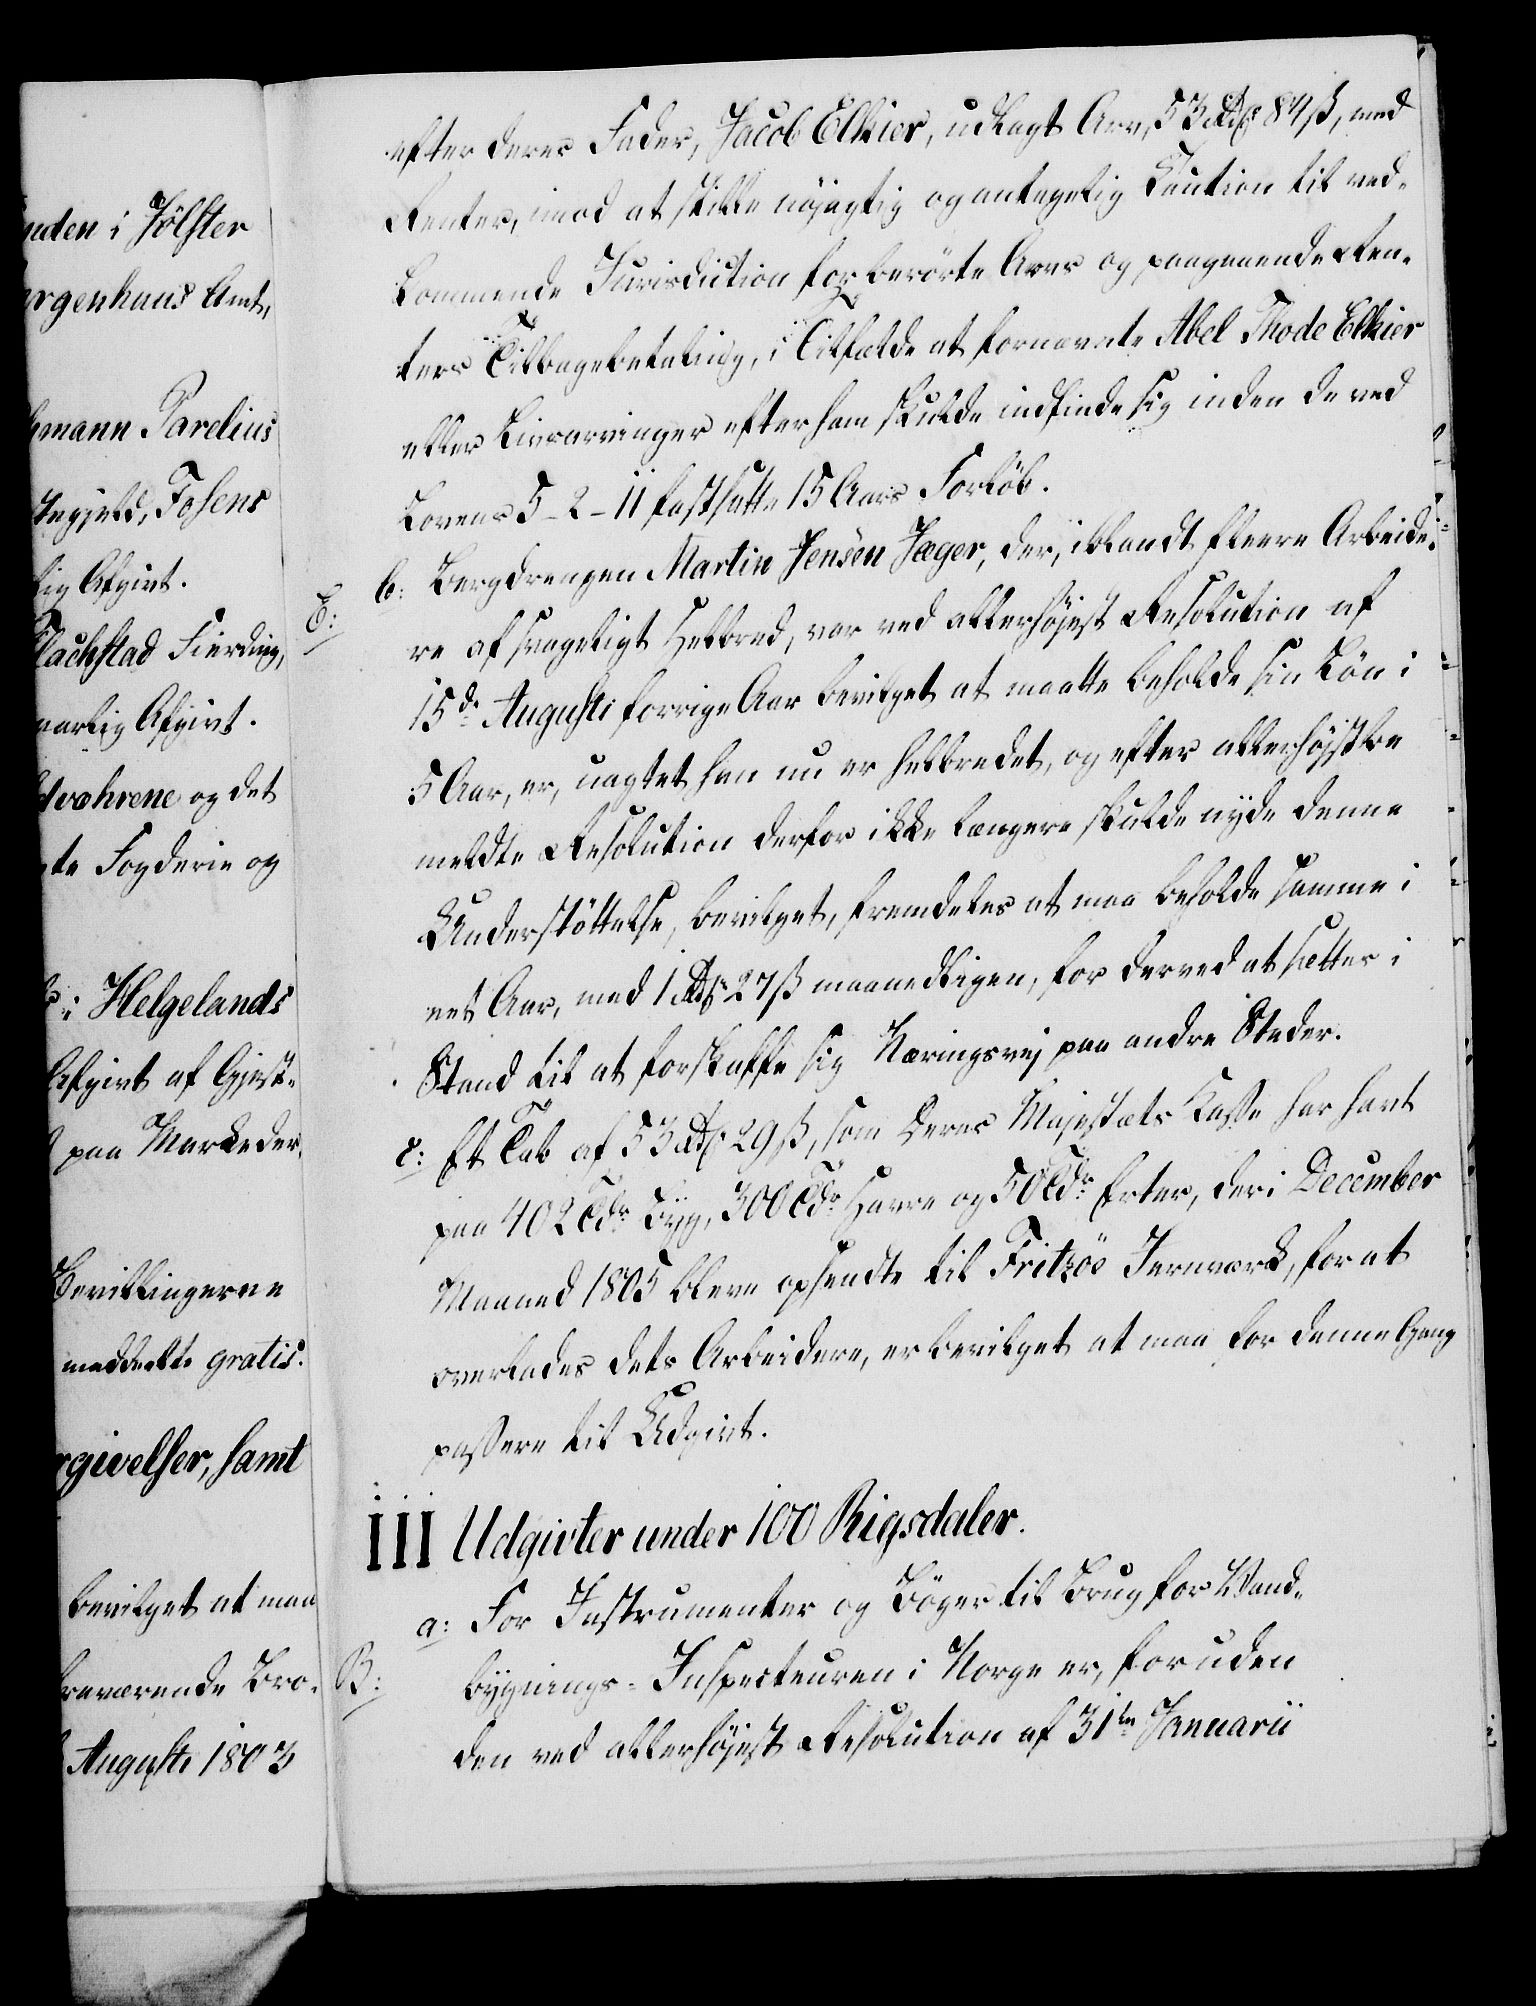 nden i Jölster
rgenhuus Amt,
hmann Parelius
tegjeld, Fosens
lig Afgivt.
Flachstad Fierding,
aarlig Afgivt.
dvæhrene og det
te Fogderie og
i Helgelands
Afgivt af Gjest-
paa Markeder.
Bevillingerne
meddeelte gratis.
rgivelser, samt
bevilget at maa
fraværende Bro-
Augusti 1803
efter deres Fader, Jacob Elkier, udlagt Arv, 53 Rdlr 84 ß, med
Renter, imod at stille nöjagtig og antagelig Caution til ved-
kommende Jurisdiction for berörte Arvs og paagaaende Ren-
ters Tilbagebetaling, i Tilfælde at fornævnte Abel Thode Elkier
eller Livsarvinger efter ham skulde indfinde sig inden de ved
Lovens 5-2-11 fastsatte 15 Aars Forlöb.
E:
b: Bergdrengen Martin Jensen Jæger, der, iblandt fleere Arbeide-
re af svageligt Helbred, var ved allerhöjest Resolution af
15de Augusti forrige Aar bevilget at maatte beholde sin Lön i
5 Aar, er, uagtet han nu er helbredet, og efter allerhöjstbe
meldte Resolution derfor ikke længere skulde nyde denne
Understöttelse, bevilget, fremdeles at maa beholde samme i
eet Aar, med 1 Rdlr 27 ß maanedligen, for derved at sættes i
Stand til at forskaffe sig Næringsvej paa andre Steder.
c: Et Tab af 53 Rdlr 29 ß, som Deres Majestæts Kasse har havt
paa 402 Tdr Byg, 300 Tdr Havre og 50 Tdr Erter, der i December
Maaned 1805 bleve opsendte til Fritzöe Jernværk, for at
overlades dets Arbeidere, er bevilget at maa for denne Gang
passere til Udgivt.
III Udgivter under 100 Rigsdaler.
a: For Instrumenter og Böger til Brug for Vand-
B:
bygnings-Inspecteuren i Norge er, foruden
den ved allerhöjest Resolution af 31te Januarii